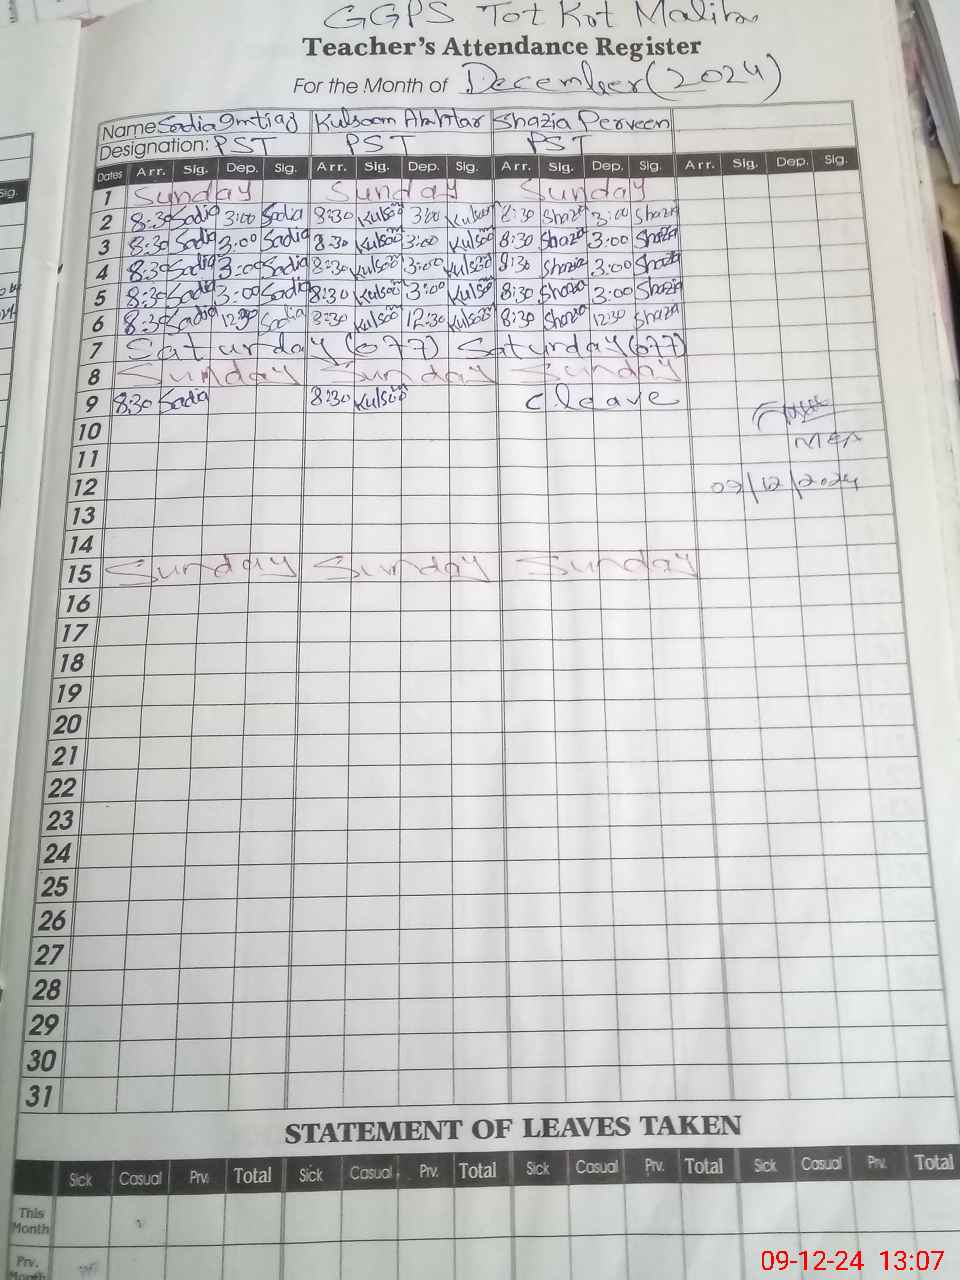 GGPS Tot Kot Maliba
Teacher's Attendance Register
For the Month of December (2024)
Name Sadia Imtiaz Kulsoom Akhtar Shazia Perveen
Designation: PST PST PST
Dates Arr. Sig. Dep. Sig. Arr. Sig. Dep. Sig. Arr. Sig. Dep. Sig. Arr. Sig. Dep. Sig.
1 Sunday Sunday Sunday
2 8:30 Sadia 3:00 Sadia 8:30 Kulsoom 3:00 Kulsoom 8:30 Shazia 3:00 Shazia
3 8:30 Sadia 3:00 Sadia 8:30 Kulsoom 3:00 Kulsoom 8:30 Shazia 3:00 Shazia
4 8:30 Sadia 3:00 Sadia 8:30 Kulsoom 3:00 Kulsoom 8:30 Shazia 3:00 Shazia
5 8:30 Sadia 3:00 Sadia 8:30 Kulsoom 3:00 Kulsoom 8:30 Shazia 3:00 Shazia
6 8:30 Sadia 12:30 Sadia 8:30 Kulsoom 12:30 Kulsoom 8:30 Shazia 12:30 Shazia
7 Saturday (off) Saturday (off)
8 Sunday Sunday Sunday
9 8:30 Sadia 8:30 Kulsoom C leave
10 MEA
11
12 09/12/2024
13
14
15 Sunday Sunday Sunday
16
17
18
19
20
21
22
23
24
25
26
27
28
29
30
31
STATEMENT OF LEAVES TAKEN
Sick Casual Prv. Total Sick Casual Prv. Total Sick Casual Prv. Total Sick Casual Prv. Total
This Month
Prv. Month
09-12-24 13:07